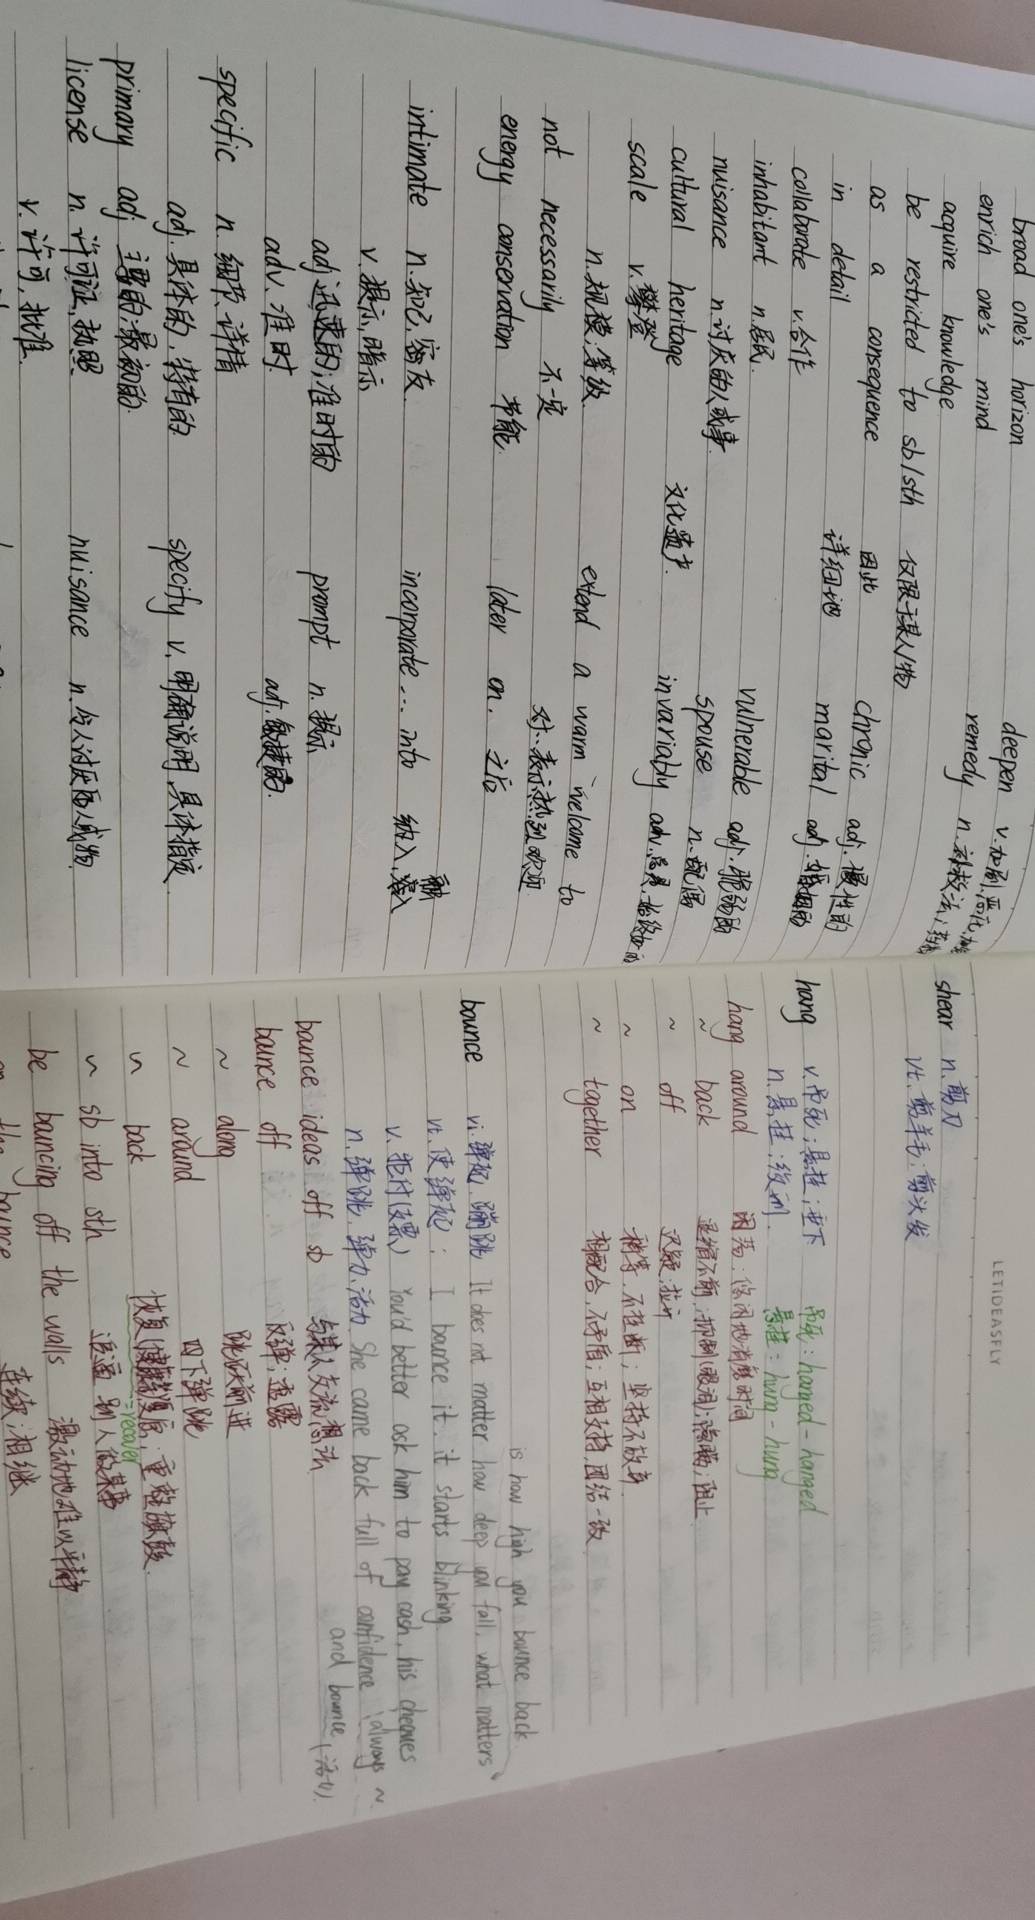 broad one's horizon
enrich one's mind
acquire knowledge
be restricted to sb/sth 仅限于某人/物
as a consequence 因此
in detail 详细地
collaborate v.合作
inhabitant n.居民.
nuisance n.讨厌的人或事.
cultural heritage 文化遗产.
scale v.攀登
n.规模;等级.
not necessarily 不一定
energy conservation 节能.
intimate n.知己,密友.
v.提示,暗示
adj 迅速的;准时的
adv.准时.
specific n.细节.详情
adj.具体的,特有的
primary adj 主要的,最初的.
license n.许可证,执照.
v.许可,批准.
deepen v.加剧,恶化,加
remedy n.补救法;药
chronic adj.慢性的
marital adj.婚姻的
vulnerable adj.脆弱的
spouse n.配偶
invariably adv.总是,始终如一
extend a warm welcome to
对...表示热烈欢迎
later on. 之后
incorporate... into 纳入,
prompt n.提示
adj.敏捷的.
specify v.明确说明,具体指定
nuisance n.令人讨厌的人或物
LETIDEASFLY
shear n.剪刀
vt.剪羊毛;剪头发
hang v.吊死;悬挂;垂下 吊死:hanged-hanged
n.悬挂;绞刑. 悬挂:hung-hung
hang around 闲荡;悠闲地消磨时间
~ back 退缩不前;抑制(眼泪);隐瞒;阻止
~ off 迟疑;放开
~ on 稍等,不挂断;坚持不放弃
~ together 相配合,不矛盾;互相支持,团结一致
is how high you bounce back
bounce vi.弹起,蹦跳 It does not matter how deep you fall, what matters
vt.使弹起: I bounce it. it starts blinking.
v.拒付(支票) You'd better ask him to pay cash, his cheques
n.弹跳,弹力,活力 She came back full of confidence always ~
and bounce (活力).
bounce ideas off sb 与某人交流想法
bounce off 反弹;
~ along 跳跃前进
~ around 四下弹跳
~ back 恢复(健康);重整旗鼓.
=recover
~ sb into sth 逼迫别人做某事
be bouncing off the walls 激动地难以平静
on the bounce 连续,相继